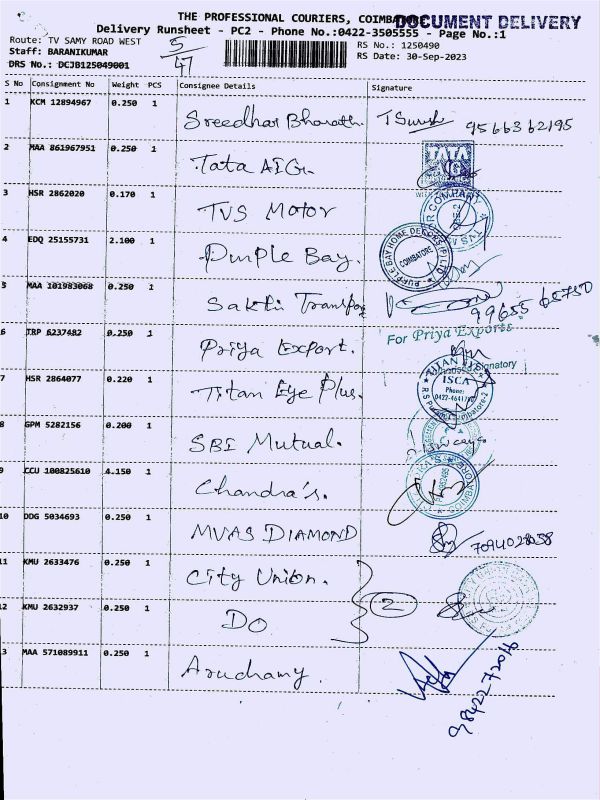 THE PROFESSIONAL COURIERS, COIMBATORE
DOCUMENT DELIVERY
Delivery Runsheet - PC2 - Phone No.:0422-3505555 - Page No.:1
Route: TV SAMY ROAD WEST
Staff: BARANIKUMAR
DRS No.: DCJB125049001
5/47
RS No.: 1250490
RS Date: 30-Sep-2023
S No Consignment No Weight PCS Consignee Details Signature
1 KCM 12894967 0.250 1 Sreedhar Bharath 9566362195
2 MAA 861967951 0.250 1 Tata AIG. TATA AIG
3 HSR 2862020 0.170 1 TVS Motor
4 EDQ 25155731 2.100 1 Purple Bay. PURPLE BAY HOME DECORS (P) LTD COIMBATORE
5 MAA 101983068 0.250 1 Sakthi Transpor
6 TRP 6237482 0.250 1 Priya Export. For Priya Exports
7 HSR 2864077 0.220 1 Titan Eye Plus. TITAN EYE ISCA Phone:
8 GPM 5282156 0.200 1 SBI Mutual.
9 CCU 100825610 4.150 1 Chandra's.
10 DDG 5034693 0.250 1 MVAS DIAMOND
11 KMU 2633476 0.250 1 City Union.
12 KMU 2632937 0.250 1 DO 2
13 MAA 571089911 0.250 1 Aruchamy. 9842272016